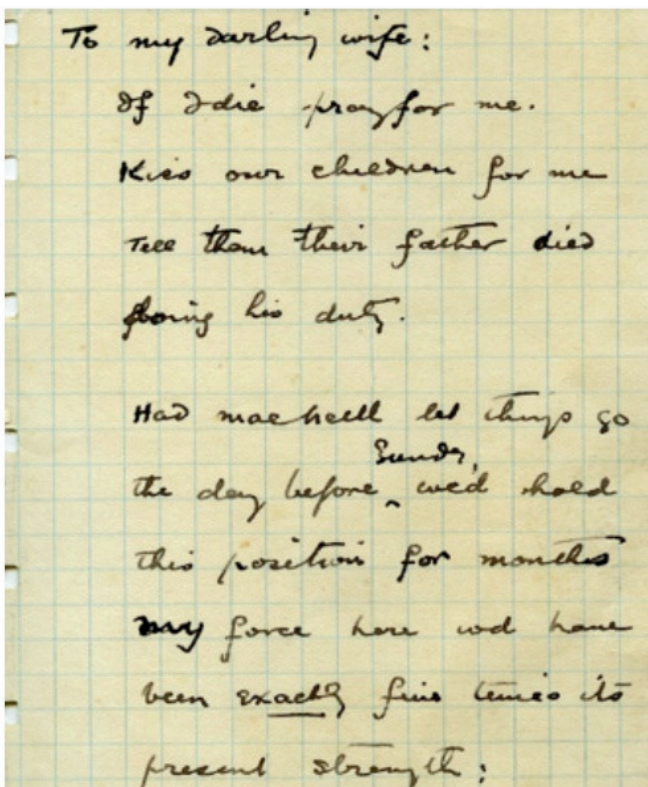 To my darling wife:
If I die pray for me.
Kiss our children for me
Tell them their father died
doing his duty.
Had MacNeill let things go
the day before Sunday, we'd hold
this position for months
my force here wd have
been exactly five times its
present strength: